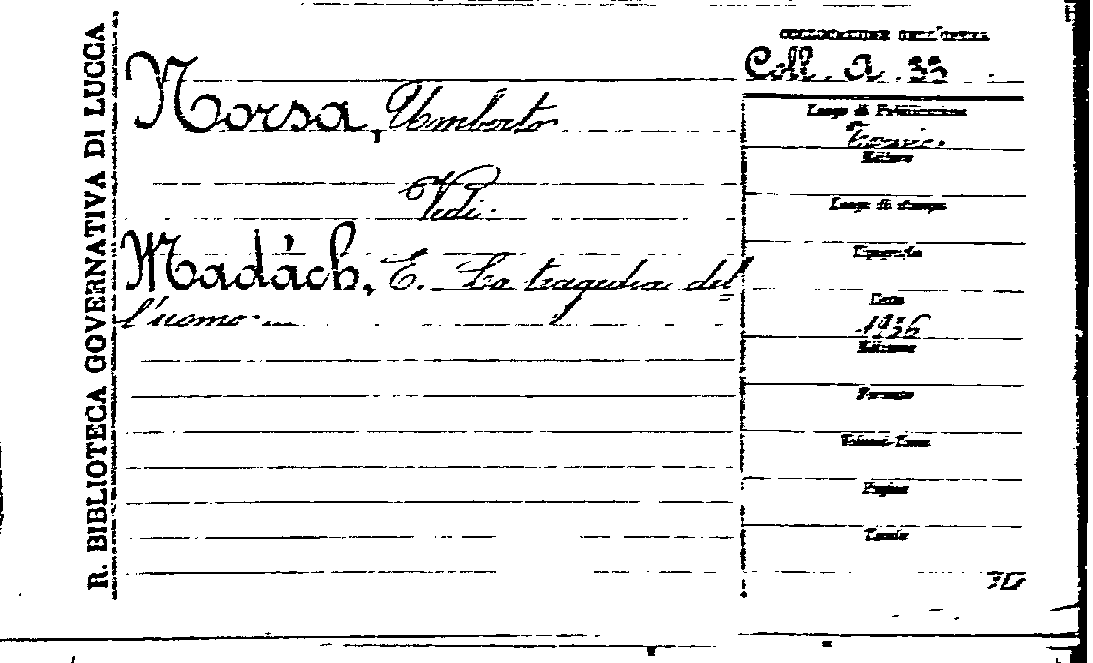 R. BIBLIOTECA GOVERNATIVA DI LUCCA
Norsa, Umberto
Vedi.
Madách, E. La tragedia del=
l'uomo.
COLLOCAZIONE DELL'OPERA
Coll. A. 33
Luogo di Pubblicazione
Editore
Luogo di stampa
Tipografia
Data
1936
Edizione
Formato
Volumi-Tomi
Pagine
Tavole